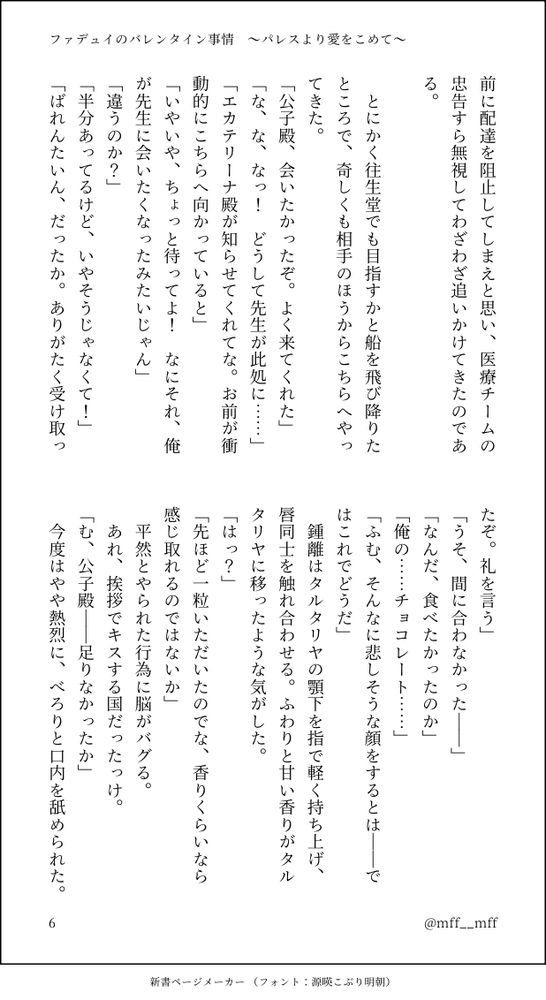 ファデュイのバレンタイン事情　～パレスより愛をこめて～
前に配達を阻止してしまえと思い、医療チームの
忠告すら無視してわざわざ追いかけてきたのであ
る。
　とにかく往生堂でも目指すかと船を飛び降りた
ところで、奇しくも相手のほうからこちらへやっ
てきた。
「公子殿、会いたかったぞ。よく来てくれた」
「な、な、なっ！　どうして先生が此処に……」
「エカテリーナ殿が知らせてくれてな。お前が衝
動的にこちらへ向かっていると」
「いやいや、ちょっと待ってよ！　なにそれ、俺
が先生に会いたくなったみたいじゃん」
「違うのか？」
「半分あってるけど、いやそうじゃなくて！」
「ばれんたいん、だったか。ありがたく受け取っ
たぞ。礼を言う」
「うそ、間に合わなかった――」
「なんだ、食べたかったのか」
「俺の……チョコレート……」
「ふむ、そんなに悲しそうな顔をするとは――で
はこれでどうだ」
　鍾離はタルタリヤの顎下を指で軽く持ち上げ、
唇同士を触れ合わせる。ふわりと甘い香りがタル
タリヤに移ったような気がした。
「はっ？」
「先ほど一粒いただいたのでな、香りくらいなら
感じ取れるのではないか」
　平然とやられた行為に脳がバグる。
　あれ、挨拶でキスする国だったっけ。
「む、公子殿――足りなかったか」
　今度はやや熱烈に、べろりと口内を舐められた。
6
@mff__mff
新書ページメーカー（フォント：源暎こぶり明朝）